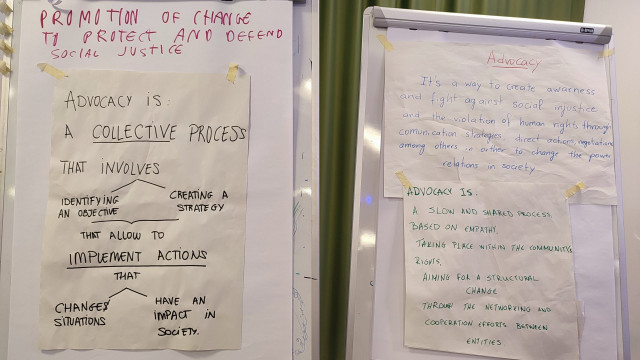 PROMOTION OF CHANGE
TO PROTECT AND DEFEND
SOCIAL JUSTICE
ADVOCACY IS:
A COLLECTIVE PROCESS
THAT INVOLVES
IDENTIFYING AN OBJECTIVE
CREATING A STRATEGY
THAT ALLOW TO
IMPLEMENT ACTIONS
THAT
CHANGES SITUATIONS
HAVE AN IMPACT IN SOCIETY.
Advocacy
It's a way to create awarness
and fight against social injustice
and the violation of human rights through
comunication strategies, direct actions, negotiations
among others in orther to change the power
relations in society
ADVOCACY IS:
A SLOW AND SHARED PROCESS,
BASED ON EMPATHY,
TAKING PLACE WITHIN THE COMMUNITY
RIGHTS,
AIMING FOR A STRUCTURAL
CHANGE
THROUGH THE NETWORKING AND
COOPERATION EFFORTS BETWEEN
ENTITIES